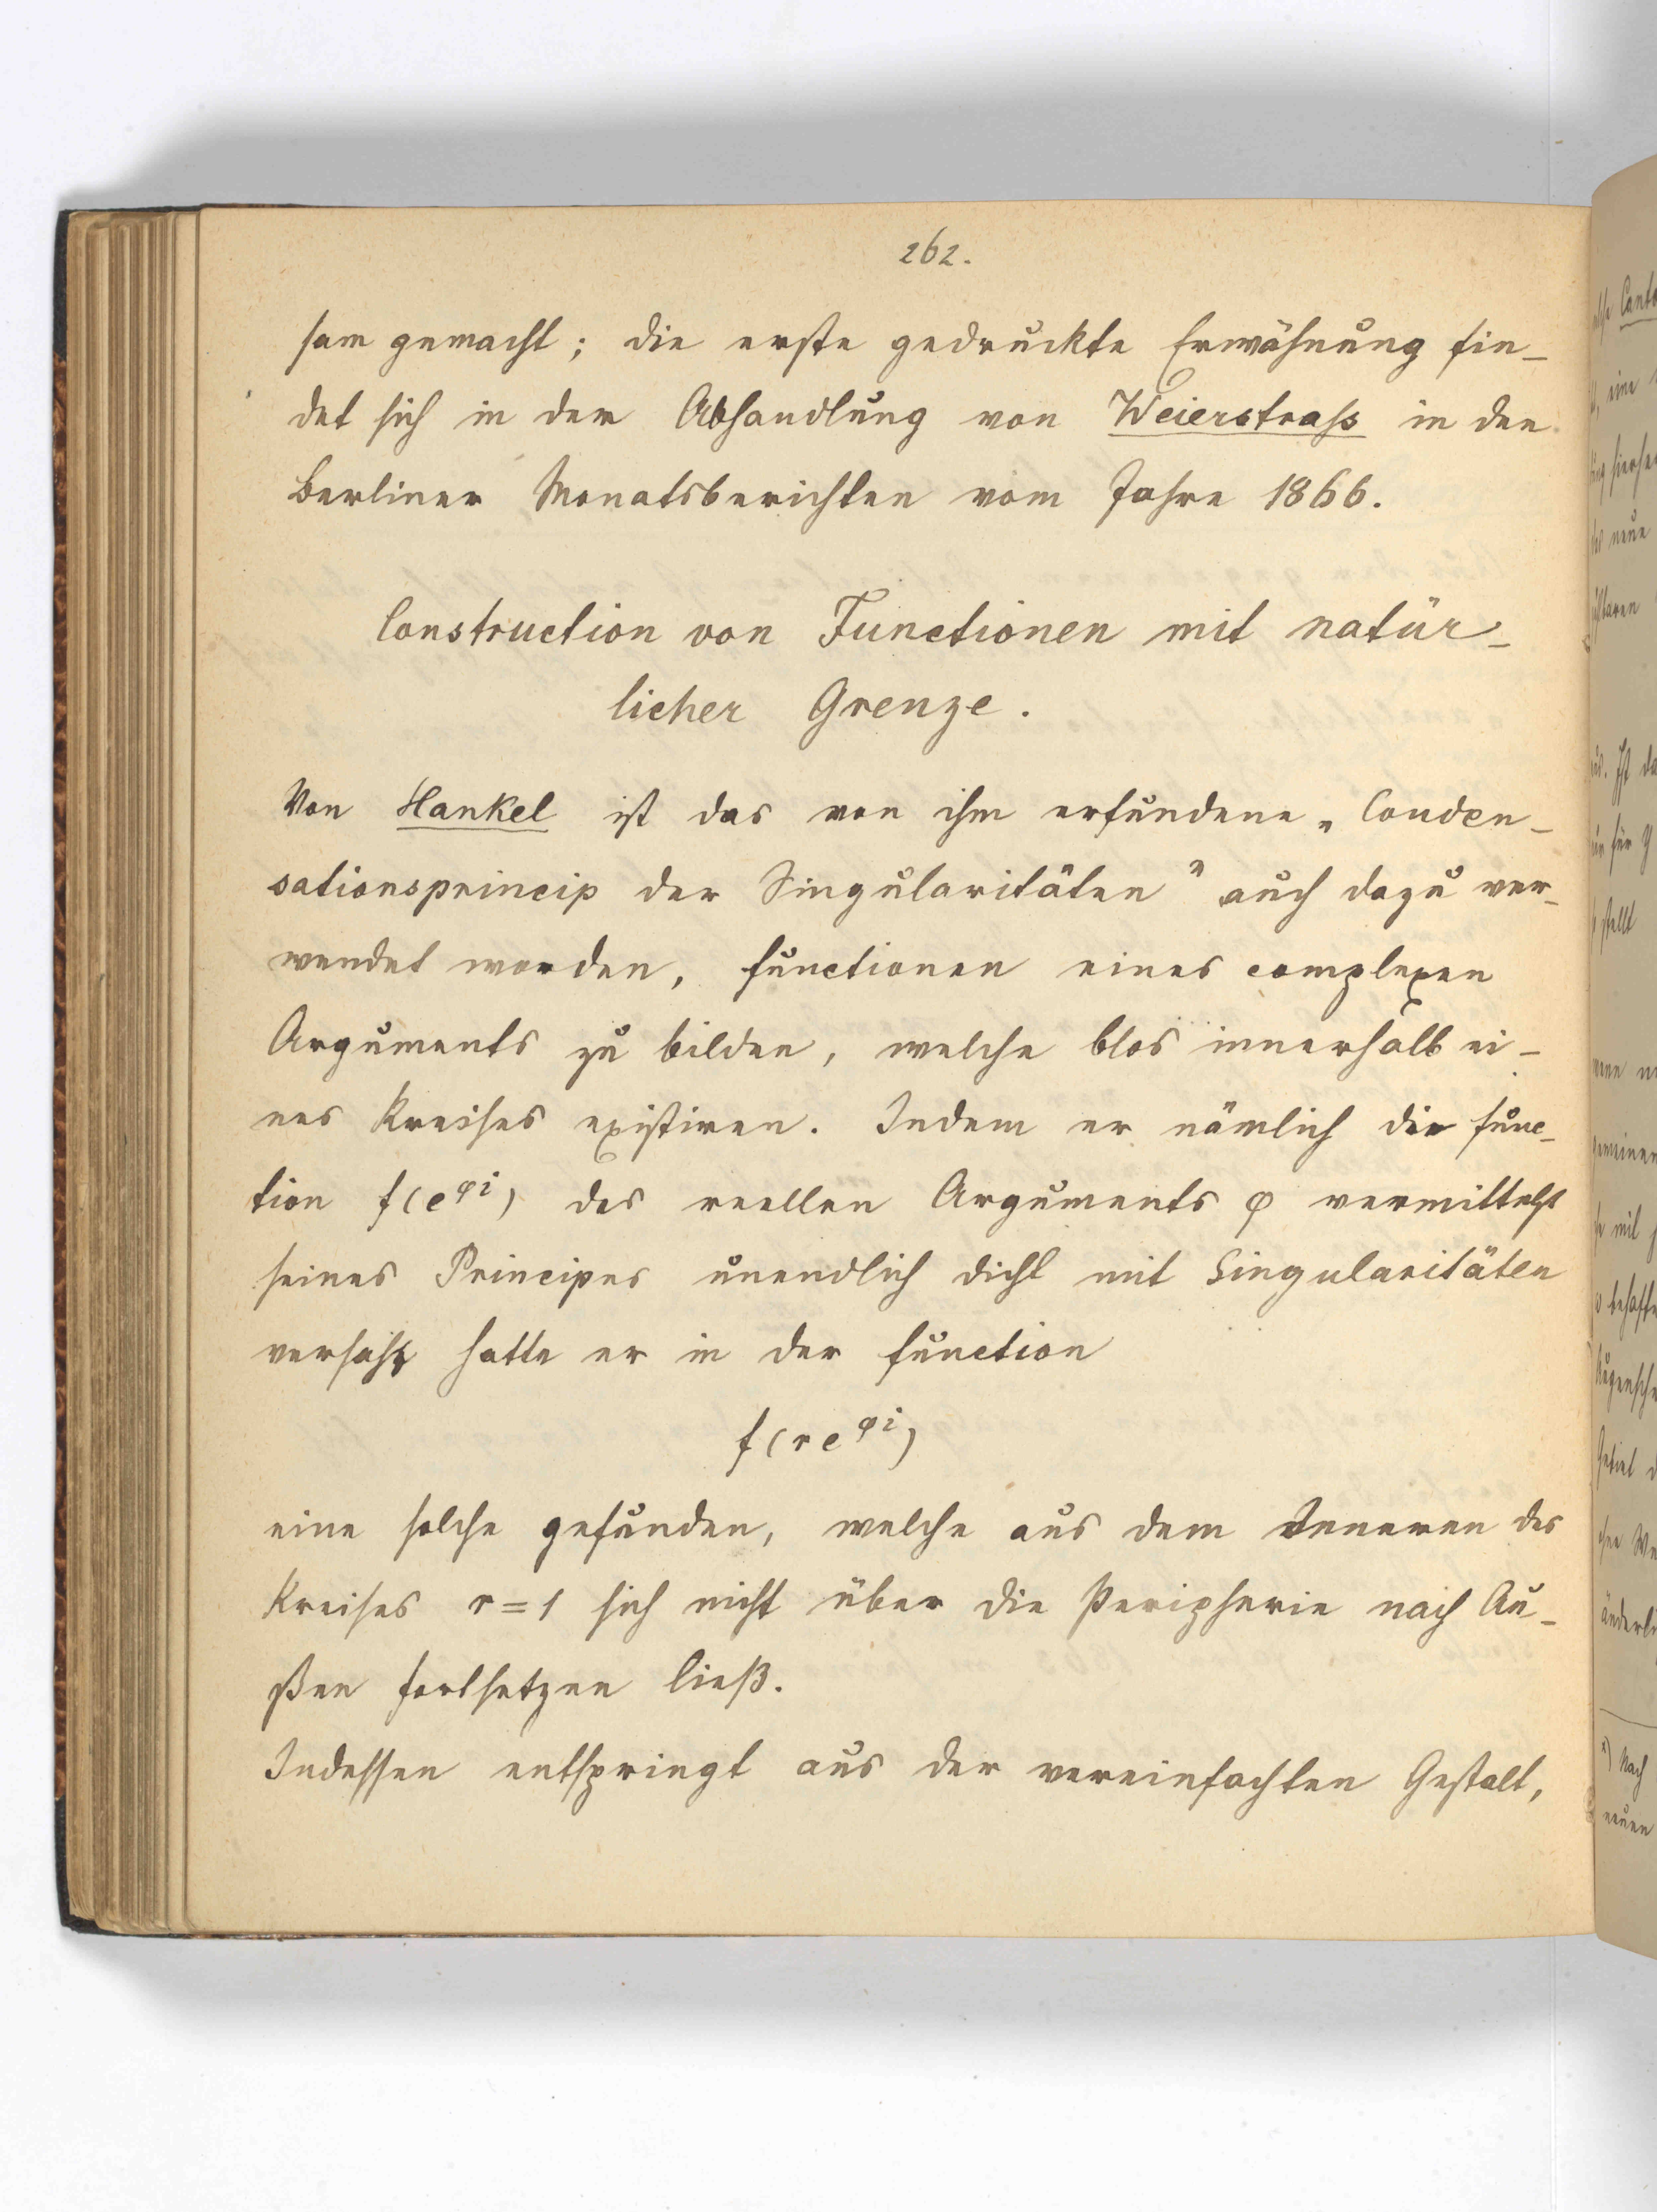 262.
sam gemacht; die erste gedruckte Erwähnung fin-
det sich in der Abhandlung von Weierstraß in den
Berliner Monatsberichten vom Jahre 1866.
Construction von Functionen mit natür-
licher Grenze.
Von Hankel ist das von ihm erfundene „Conden-
sationsprincip der Singularitäten” auch dazu ver-
wendet worden, Functionen eines complexen
Arguments zu bilden, welche blos innerhalb ei-
nes Kreises existiren. Indem er nämlich die Func-
tion f(e^{φi}) des reellen Arguments φ vermittelst
seines Principes unendlich dicht mit Singularitäten
versah, hatte er in der Function
f(re^{φi})
eine solche gefunden, welche aus dem Inneren des
Kreises r=1 sich nicht über die Peripherie nach Au-
ßen fortsetzen ließ.
Indessen entspringt aus der vereinfachten Gestalt,